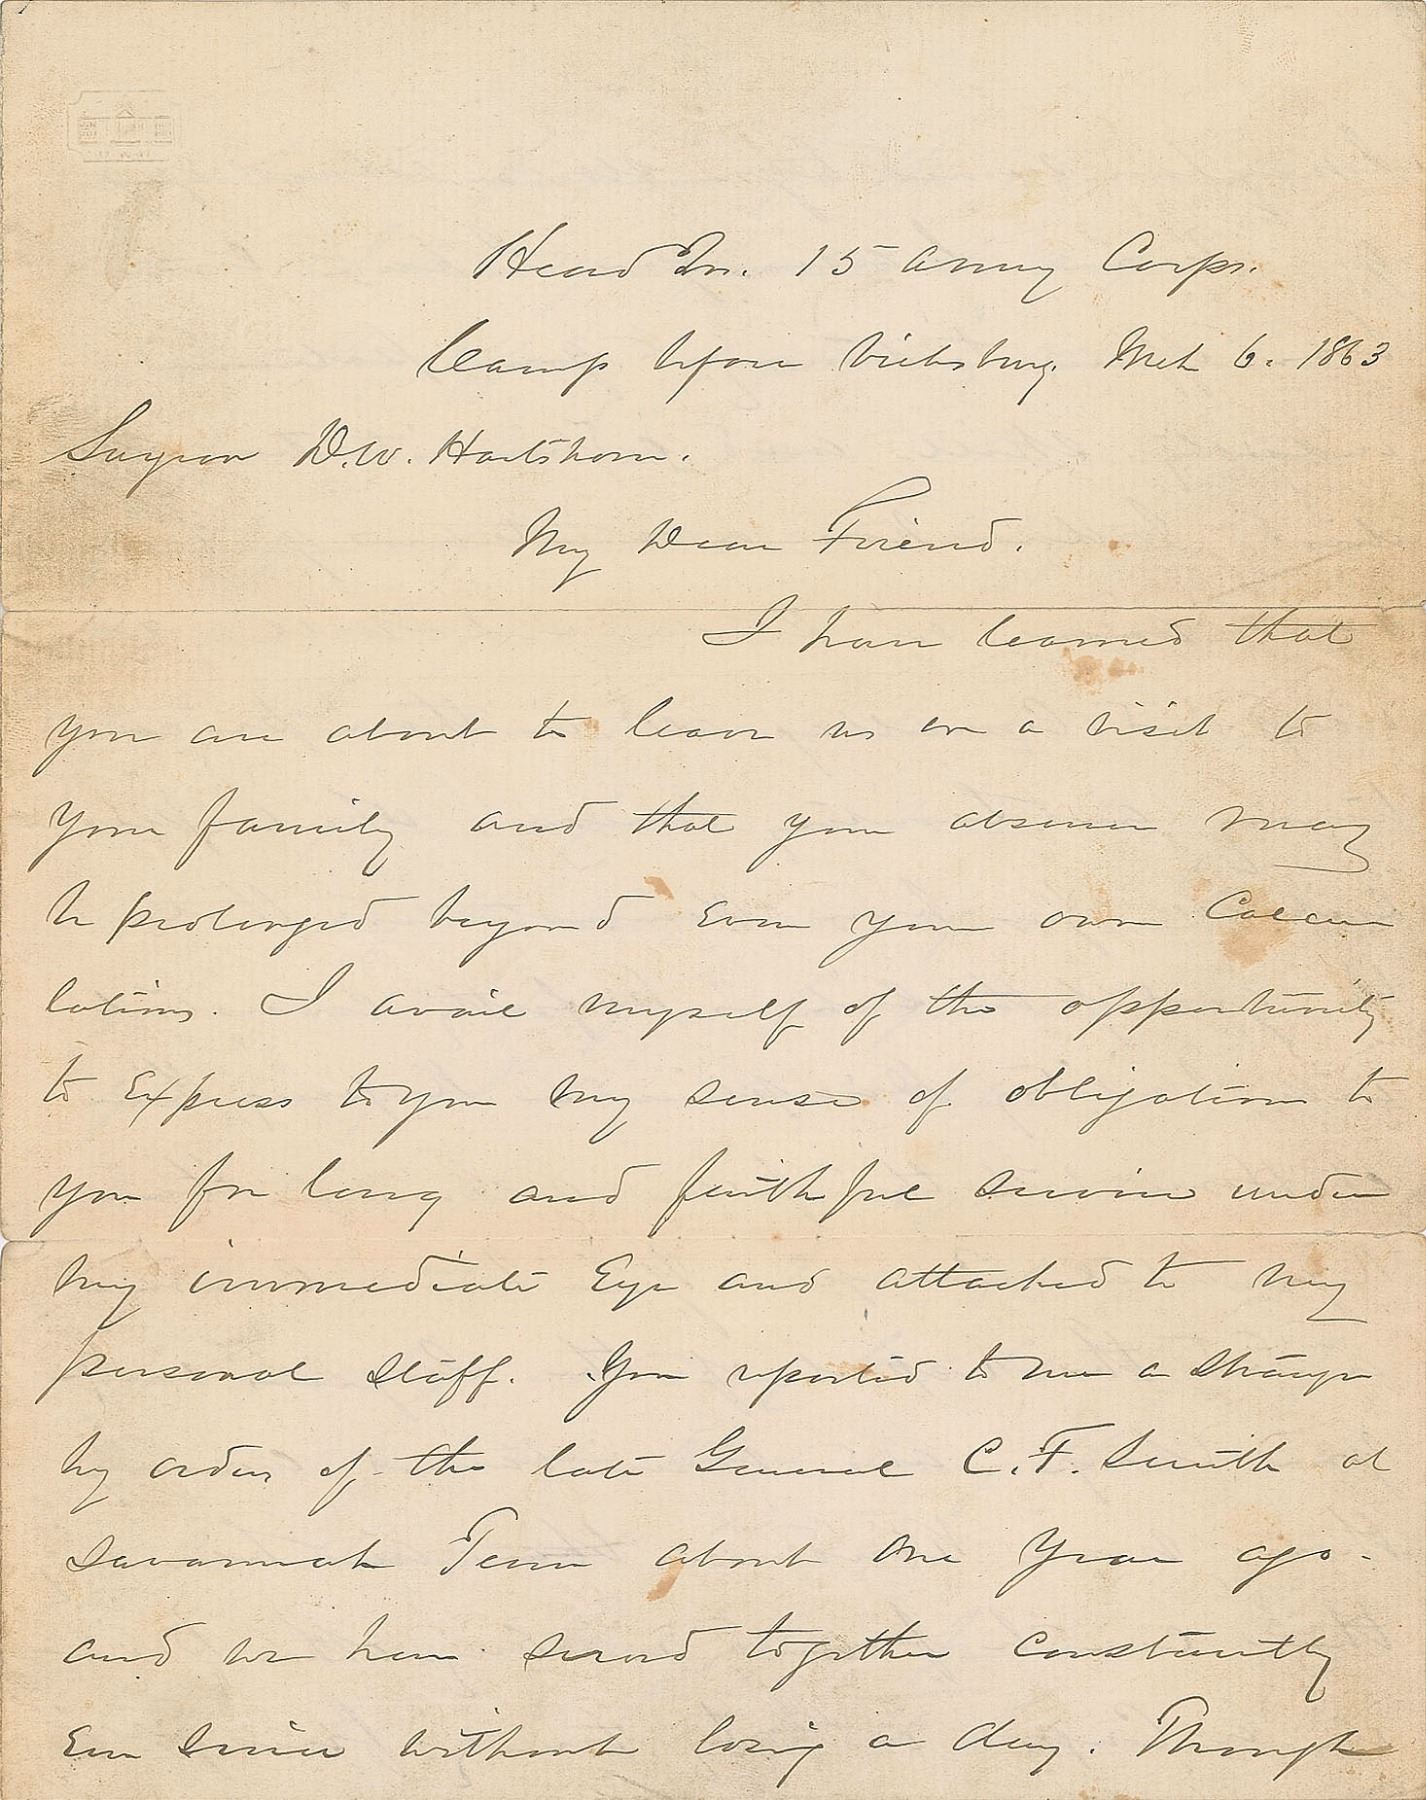 Head Qrs. 15 Army Corps.
Camp before Vicksburg. Mch 6. 1863
Surgeon D.W. Hartshorn.
My Dear Friend.
I have learned that
you are about to leave us on a visit to
your family and that your absence may
be prolonged beyond even your own calcu
lations. I avail myself of the opportunity
to express to you my sense of obligation to
you for long and faithful service under
my immediate Eye and attached to my
personal staff. You reported to me a stranger
by order of the late General C.F. Smith at
Savannah Tenn about one year ago.
and we have served together constantly
ever since without losing a day. Though